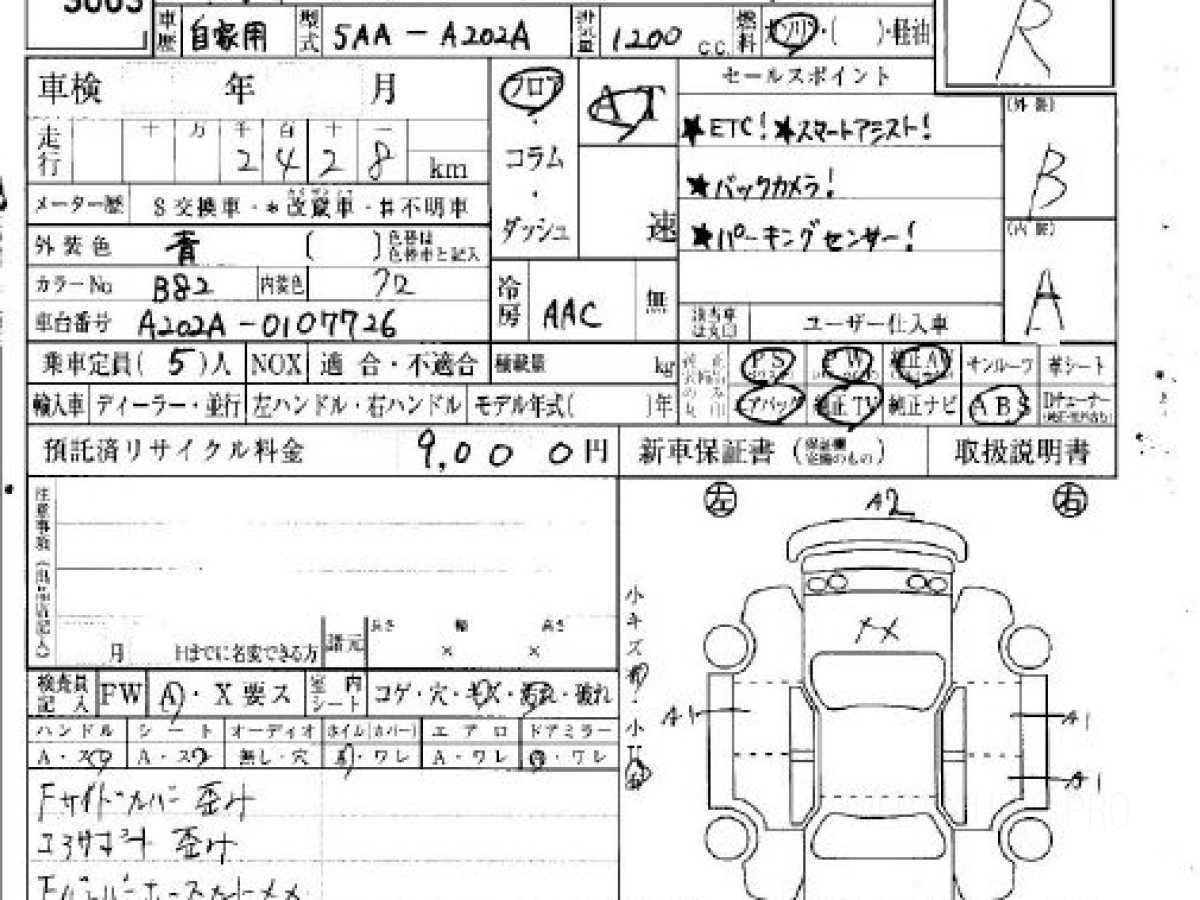 5003
車歴 自家用 型式 5AA-A202A 排気量 1200 C.C. 燃料 ガソリン・( )・軽油
R
車検 年 月
フロア・コラム・ダッシュ
AT
速
セールスポイント
★ETC! ★スマートアシスト!
★バックカメラ!
★パーキングセンサー!
(外装)
B
(内装)
A
走行 十 万 千 百 十 一
2 4 2 8 km
メーター歴 S交換車・*改竄車・#不明車
外装色 青 ( ) 色替は色替車と記入
カラーNo B82 内装色 72
車台番号 A202A-0107726
冷房 AAC 無
該当車は丸印 ユーザー仕入車
乗車定員( 5 )人 NOX 適合・不適合 積載量 kg
PS PW 純正AW サンルーフ 革シート
輸入車 ディーラー・並行 左ハンドル・右ハンドル モデル年式( )年
エアバック 純正TV 純正ナビ ABS
預託済リサイクル料金 9,000円
新車保証書 取扱説明書
注意事項
月 日までに名変できる方 諸元 長さ 幅 高さ
× ×
検査員記入 FW A・X要ス 室内シート コゲ・穴・キズ・汚れ・破れ
ハンドル シート オーディオ ホイル(カバー) エアロ ドアミラー
A・スレ A・スレ 無し・穴 A・ワレ A・ワレ A・ワレ
Fサイドメンバー 歪み
コアサポート 歪み
左 右
A2
XX
A1
A1
A1
小キズ有・小凹有